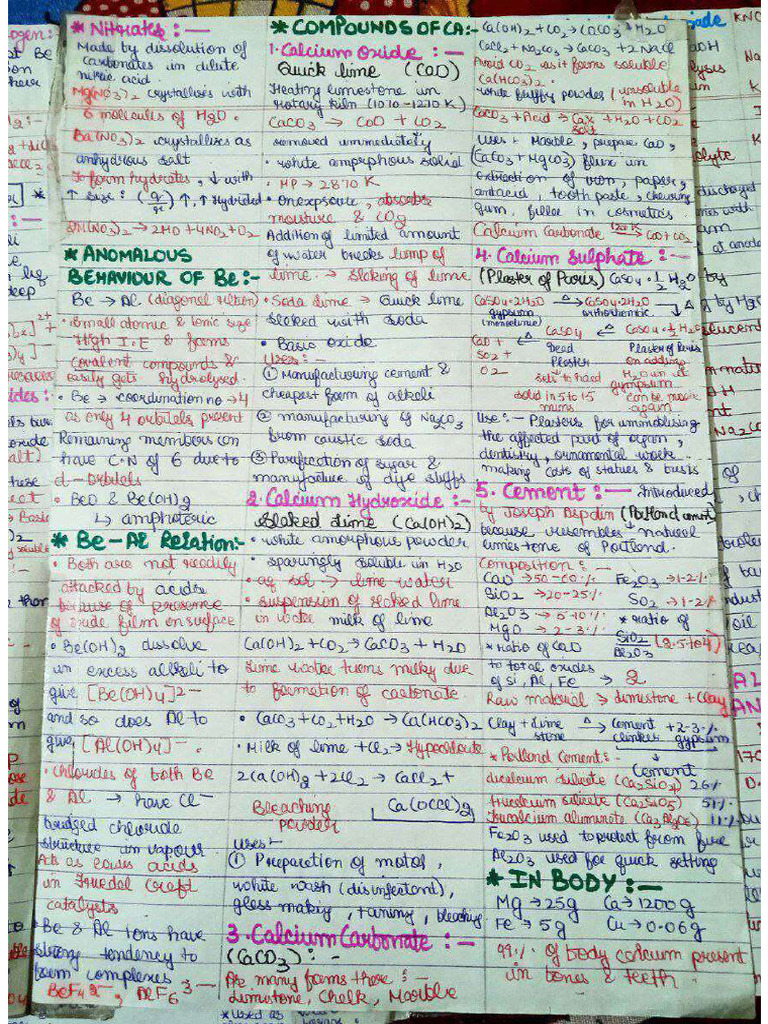 * Nitrates :—
Made by dissolution of
carbonates in dilute
nitric acid.
Mg(NO3)2 crystallises with
6 molecules of H2O.
Ba(NO3)2 crystallises as
anhydrous salt
To form hydrates, ↓ with
↑ size: ↑, ↑ Hydrated
2M(NO3)2 → 2MO + 4NO2 + O2
* ANOMALOUS
BEHAVIOUR OF Be:-
Be → Al (diagonal rltion)
• Small atomic & Ionic size
High I.E & forms
covalent compounds &
easily gets hydrolysed.
• Be → coordination no → 4
as only 4 orbitals present
Remaining members can
have C.N of 6 due to
d-orbitals
• BeO & Be(OH)2
↳ amphoteric
* Be-Al Relation:-
• Both are not readily
attacked by acids
because of presence
of oxide film on surface
• Be(OH)2 dissolve
in excess alkali to
give [Be(OH)4]2-
and so does Al to
give [Al(OH)4]-.
• Chlorides of both Be
& Al → have Cl-
bridged chloride
structure in vapour
Act as lewis acids
in Friedal Craft
catalysts
• Be & Al Ions have
strong tendency to
form complexes
BeF4 2-, AlF6 3-
* COMPOUNDS OF CA:-
1. Calcium Oxide :—
Quick lime (CaO)
Heating limestone in
Rotary kiln (1070-1270 K)
CaCO3 → CaO + CO2
removed immediately
• white amorphous solid
• MP → 2870 K
• On exposure, absorbs
moisture & CO2
Addition of limited amount
of water breaks lump of
lime → Slaking of lime
• Soda lime → Quick lime
slaked with soda
• Basic oxide
Uses:-
① Manufacturing cement &
cheapest form of alkali
② manufacturing of Na2CO3
from caustic soda
③ Purification of sugar &
manufacture of dye stuffs
2. Calcium Hydroxide :-
Slaked Lime (Ca(OH)2)
• white amorphous powder
• sparingly soluble in H2O
• aq sol → lime water
• suspension of slaked lime
in water milk of lime
Ca(OH)2 + CO2 → CaCO3 + H2O
Lime water turns milky due
to formation of carbonate.
• CaCO3 + CO2 + H2O → Ca(HCO3)2
• Milk of lime + Cl2 → Hypochlorite
2Ca(OH)2 + 2Cl2 → CaCl2 +
Bleaching Ca(OCl)2
powder
uses-
① Preparation of motal,
white wash (disinfectant),
glass making, tanning, bleaching
3. Calcium Carbonate :—
(CaCO3) :—
As many forms there :-
Limestone, Chalk, Marble
Ca(OH)2 + CO2 → CaCO3 + H2O
CaCl2 + Na2CO3 → CaCO3 + 2NaCl
Avoid CO2 as it forms soluble
Ca(HCO3)2.
• white fluffy powder (insoluble
in H2O)
CaCO3 + Acid → Cax + H2O + CO2
salt
uses - Marble, prepare CaO,
(CaCO3 + MgCO3) flux in
extraction of iron, paper,
antacid, tooth paste, chewing
gum, filler in cosmetics.
Calcium Carbonate 1200 K CaO + CO2
4. Calcium Sulphate :—
(Plaster of Paris) CaSO4 · 1/2 H2O
CaSO4·2H2O △→ CaSO4·2H2O
gypsum orthorhombic ↓ △
(monoclinic)
CaO + ← CaSO4 ←△ CaSO4·1/2 H2O
SO2 + Dead Plaster of Paris
O2 Plaster on adding
sets to hard H2O in it
solid in 5 to 15 gympsum
mins can be made
again
Use:- Plasters for immobilising
the affected part of organ,
dentistry, ornamental work
making casts of statues & busts
5. Cement :— Introduced
by Joseph Aspdin (Portland cement)
because resembles natural
limestone of Portland.
Composition :—
CaO → 50-60% Fe2O3 → 1-2%
SiO2 → 20-25% SO2 → 1-2%
Al2O3 → 5-10% * ratio of
MgO → 2-3% SiO2/Al2O3 (2.5 to 4)
* ratio of CaO
to total oxides
of Si, Al, Fe → 2
Raw material → limestone + Clay
Clay + lime △→ Cement + 2-3%
stone clinker gypsum
↓
Cement
* Portland Cement:-
dicalcium silicate (Ca2SiO4) 26%
tricalcium silicate (Ca3SiO5) 51%
tricalcium aluminate (Ca3Al2O6) 11%
Fe2O3 used to protect from fire
Al2O3 used for quick setting
* IN BODY :—
Mg → 25g Ca → 1200g
Fe → 5g Cu → 0.06g
99% of body calcium present
in bones & teeth.